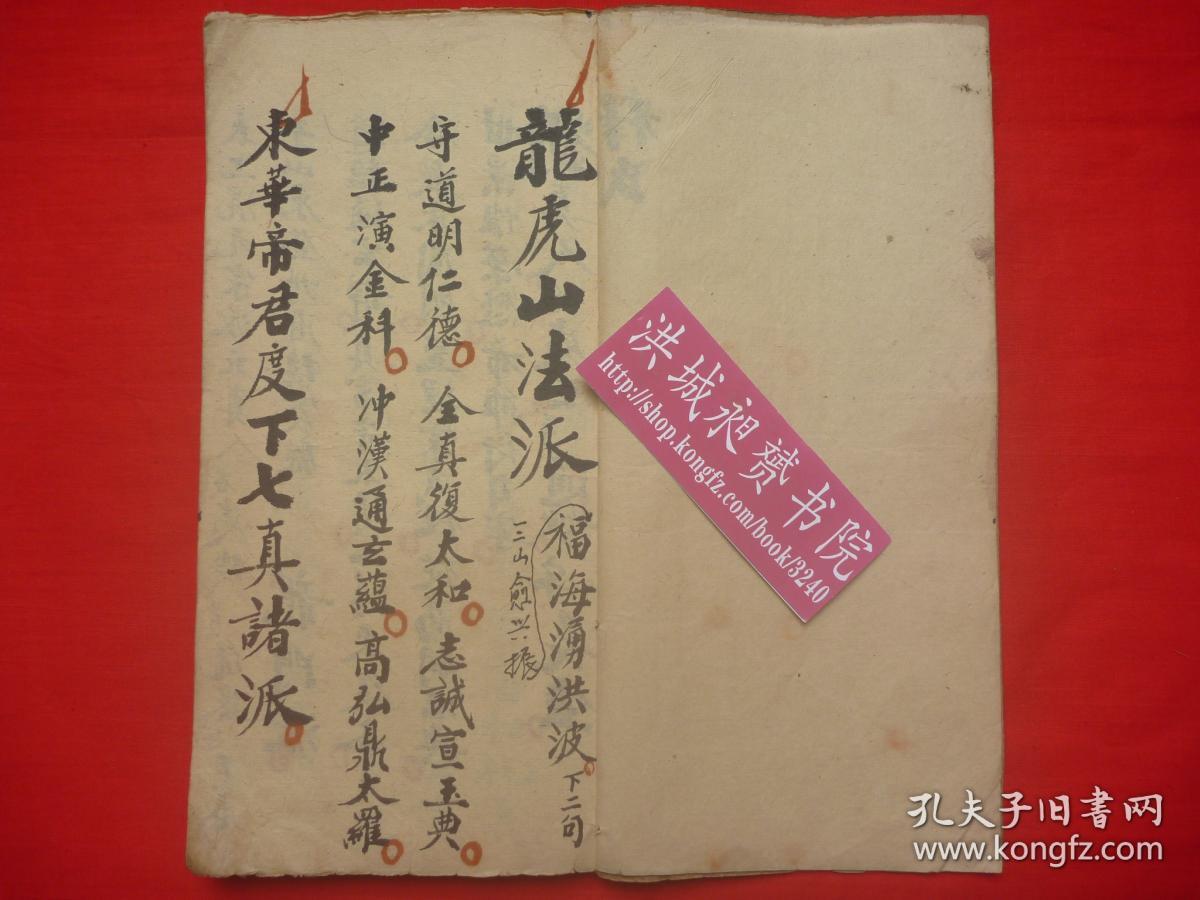 龍虎山法派
福海湧洪波。下二句
三山愈兴振
守道明仁德。全真復太和。志誠宣玉典。
中正演金科。冲漢通玄蘊。高弘鼎太羅。
東華帝君度下七真諸派。
洪城昶赟书院
http://shop.kongfz.com/book/3240
孔夫子旧书网
www.kongfz.com